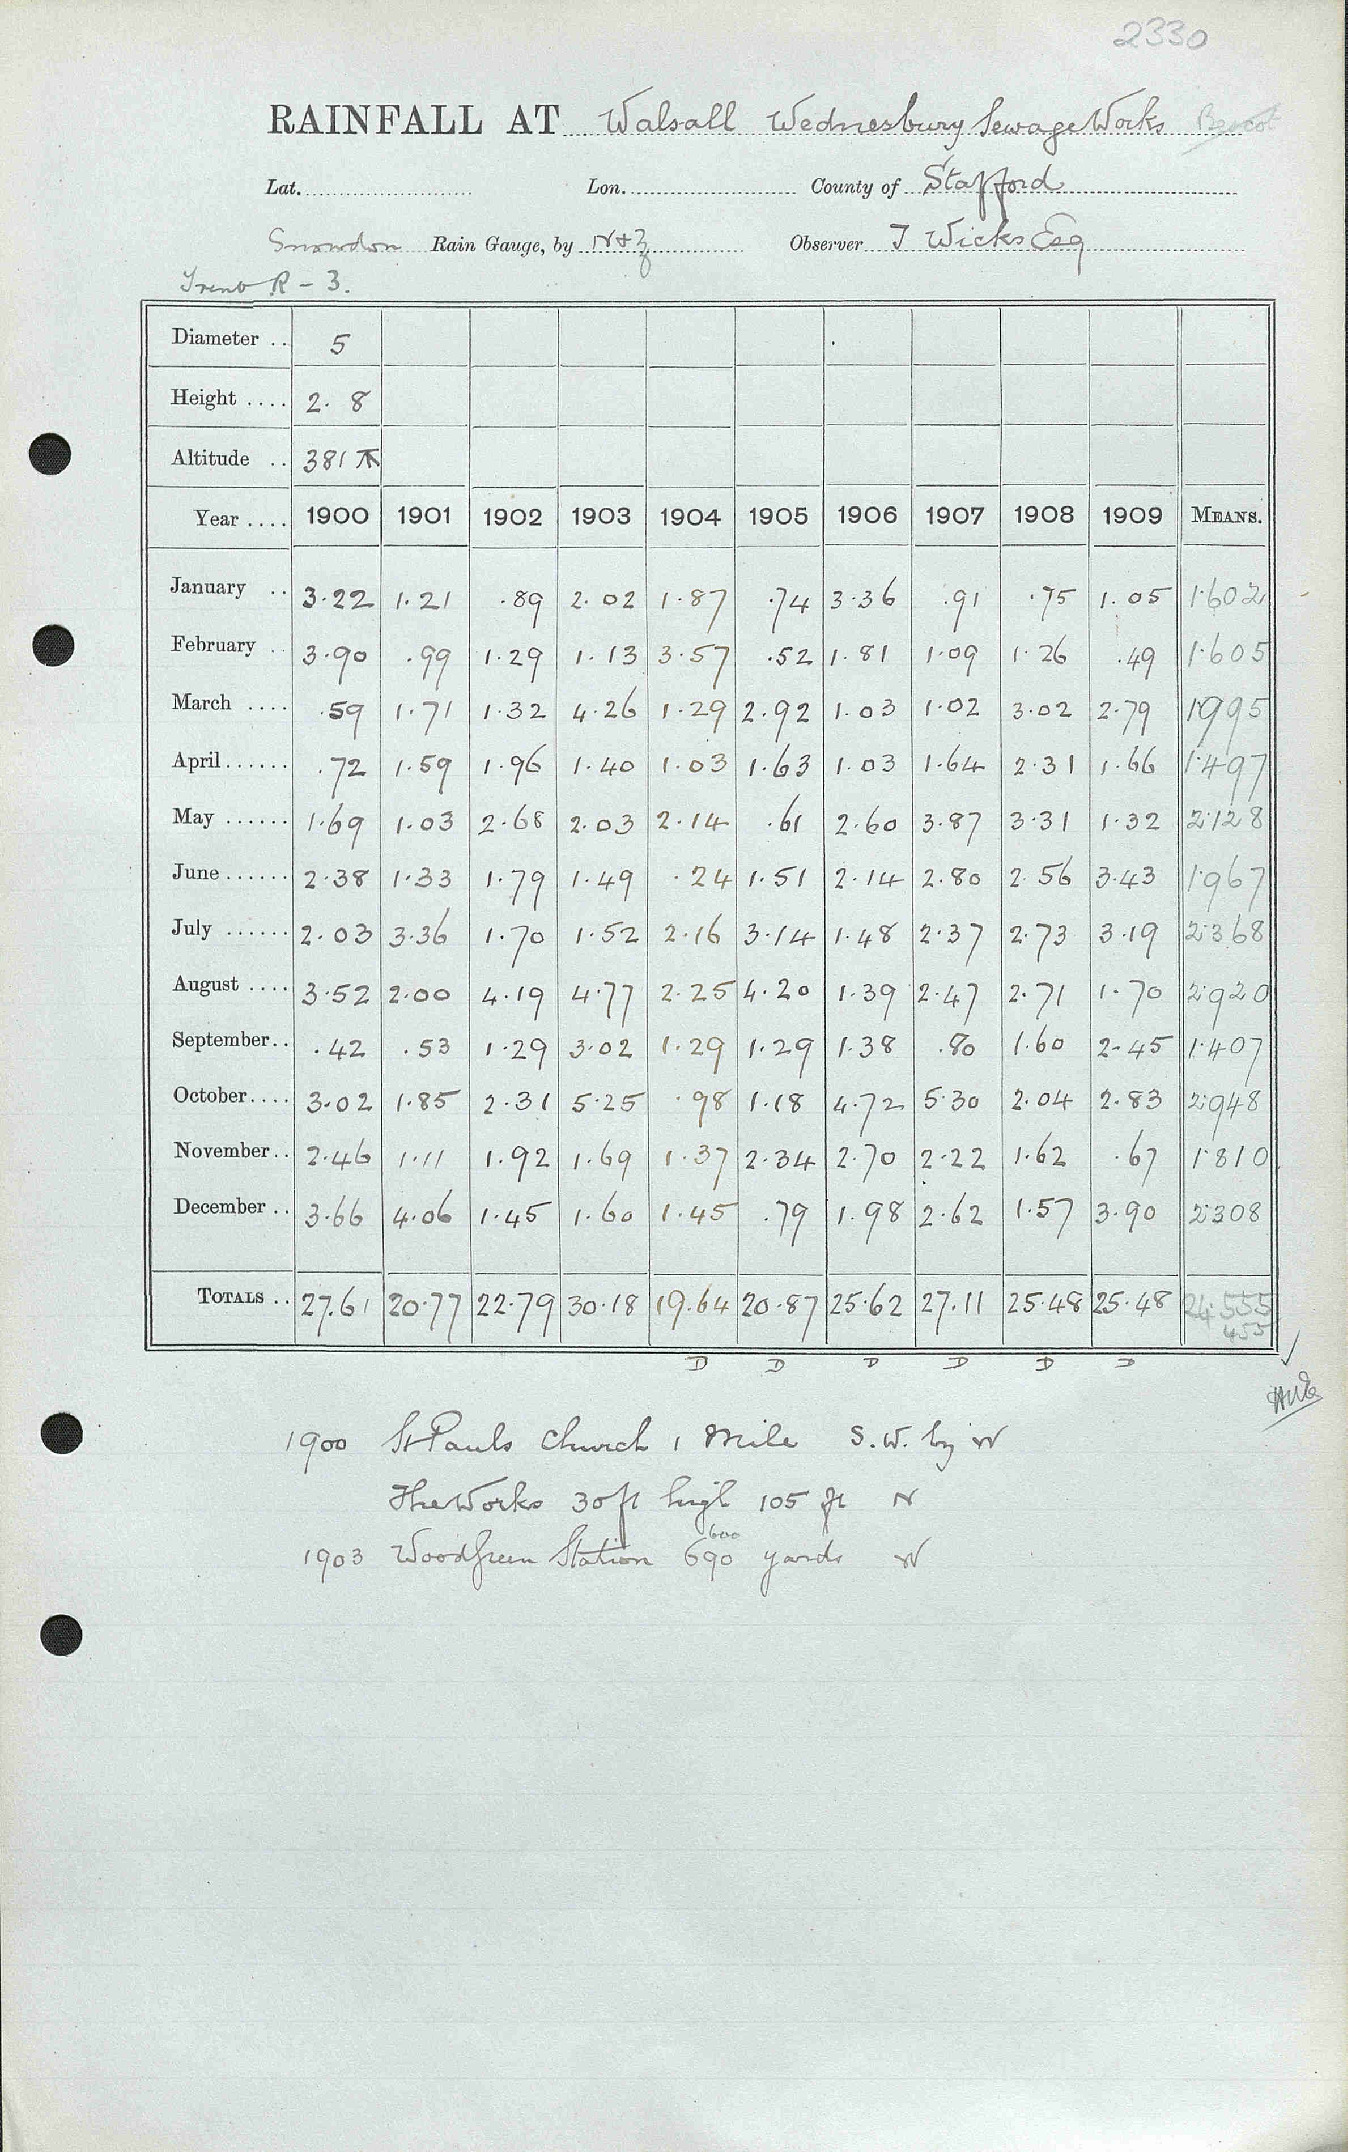 2330
RAINFALL AT Walsall Wednesbury Sewage Works Bescot
Lat. Lon. County of Stafford
Snowdon Rain Gauge, by N+Z Observer T Wicks Esq
Trent R - 3.
Diameter .. 5
Height .... 2. 8
Altitude .. 381
Year .... 1900 1901 1902 1903 1904 1905 1906 1907 1908 1909 MEANS.
January .. 3.22 1.21 .89 2.02 1.87 .74 3.36 .91 .75 1.05 1.602
February .. 3.90 .99 1.29 1.13 3.57 .52 1.81 1.09 1.26 .49 1.605
March .... .59 1.71 1.32 4.26 1.29 2.92 1.03 1.02 3.02 2.79 1.995
April ...... .72 1.59 1.96 1.40 1.03 1.63 1.03 1.64 2.31 1.66 1.497
May ...... 1.69 1.03 2.68 2.03 2.14 .61 2.60 3.87 3.31 1.32 2.128
June ...... 2.38 1.33 1.79 1.49 .24 1.51 2.14 2.80 2.56 3.43 1.967
July ...... 2.03 3.36 1.70 1.52 2.16 3.14 1.48 2.37 2.73 3.19 2.368
August .... 3.52 2.00 4.19 4.77 2.25 4.20 1.39 2.47 2.71 1.70 2.920
September .. .42 .53 1.29 3.02 1.29 1.29 1.38 .80 1.60 2.45 1.407
October .... 3.02 1.85 2.31 5.25 .98 1.18 4.72 5.30 2.04 2.83 2.948
November .. 2.46 1.11 1.92 1.69 1.37 2.34 2.70 2.22 1.62 .67 1.810
December .. 3.66 4.06 1.45 1.60 1.45 .79 1.98 2.62 1.57 3.90 2.308
TOTALS .. 27.61 20.77 22.79 30.18 19.64 20.87 25.62 27.11 25.48 25.48 24.555
455
D D D D D D
1900 St Pauls Church 1 Mile S.W. by W
The Works 30 ft high 105 ft N
600
1903 Woodgreen Station 690 yards W